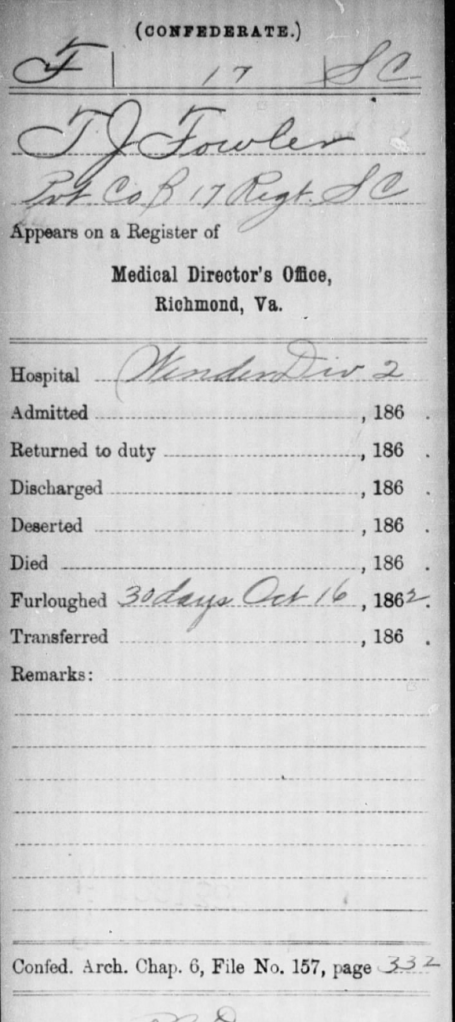 (CONFEDERATE.)
F | 17 | S C
T J Fowler
Pvt. Co B 17 Regt. S C
Appears on a Register of
Medical Director's Office,
Richmond, Va.
Hospital Winder Div 2
Admitted , 186 .
Returned to duty , 186 .
Discharged , 186 .
Deserted , 186 .
Died , 186 .
Furloughed 30 days Oct 16 , 1862.
Transferred , 186 .
Remarks:
Confed. Arch. Chap. 6, File No. 157, page 332